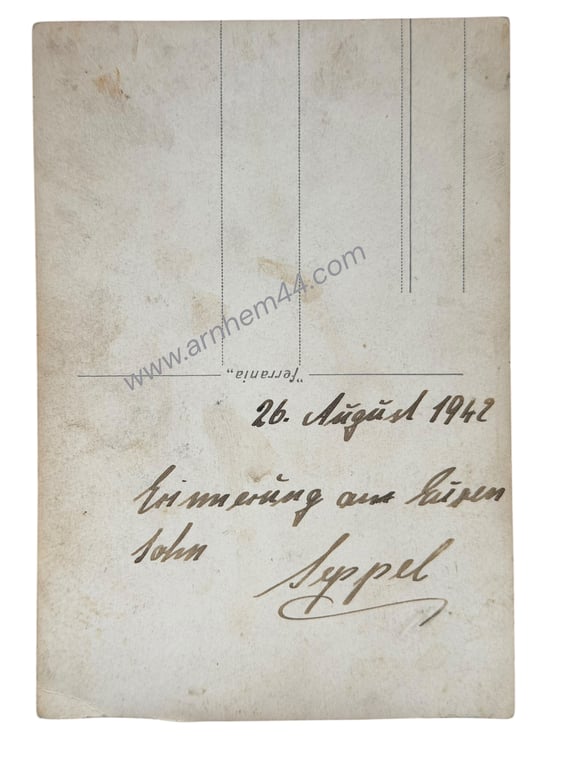 www.arnhem44.com
"Ferrania"
26. August 1942
Erinnerung an Euren
Sohn
Seppel